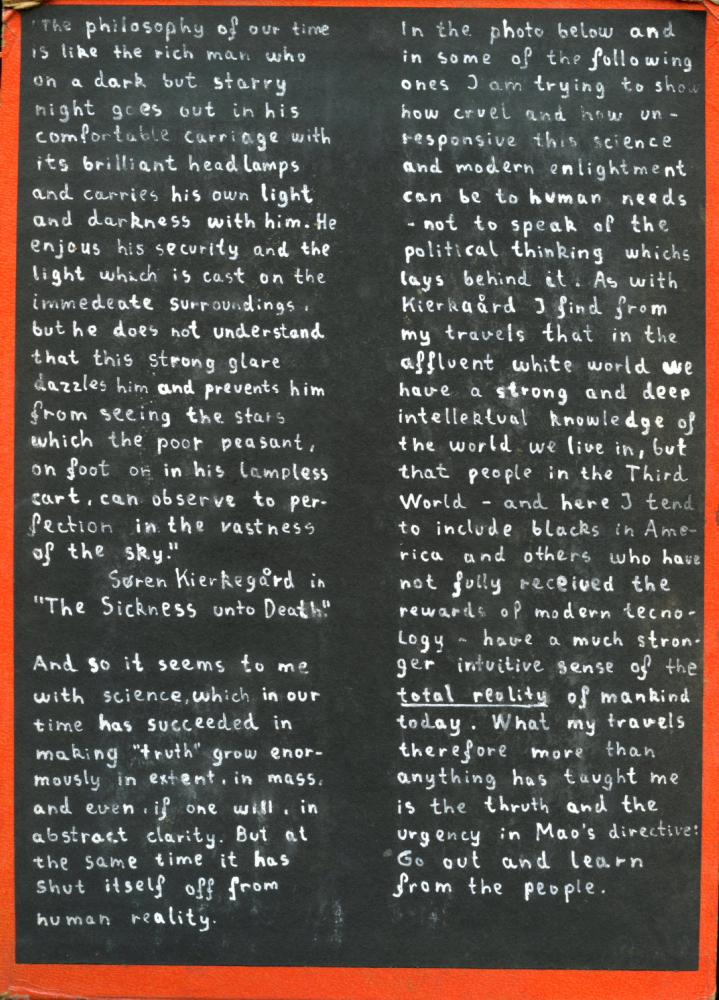 "The philosophy of our time
is like the rich man who
on a dark but starry
night goes out in his
comfortable carriage with
its brilliant headlamps
and carries his own light
and darkness with him. He
enjous his security and the
light which is cast on the
immedeate surroundings,
but he does not understand
that this strong glare
dazzles him and prevents him
from seeing the stars
which the poor peasant,
on foot or in his lampless
cart, can observe to per-
fection in the vastness
of the sky."
Søren Kierkegård in
"The Sickness unto Death."
And so it seems to me
with science, which in our
time has succeeded in
making "truth" grow enor-
mously in extent, in mass,
and even, if one will, in
abstract clarity. But at
the same time it has
shut itself off from
human reality.
In the photo below and
in some of the following
ones I am trying to show
how cruel and how un-
responsive this science
and modern enlightment
can be to human needs
- not to speak of the
political thinking whichs
lays behind it. As with
Kierkaård I find from
my travels that in the
affluent white world we
have a strong and deep
intellektual knowledge of
the world we live in, but
that people in the Third
World - and here I tend
to include blacks in Ame-
rica and others who have
not fully received the
rewards of modern tecno-
logy - have a much stron-
ger intuitive sense of the
total reality of mankind
today. What my travels
therefore more than
anything has taught me
is the thruth and the
urgency in Mao's directive:
Go out and learn
from the people.